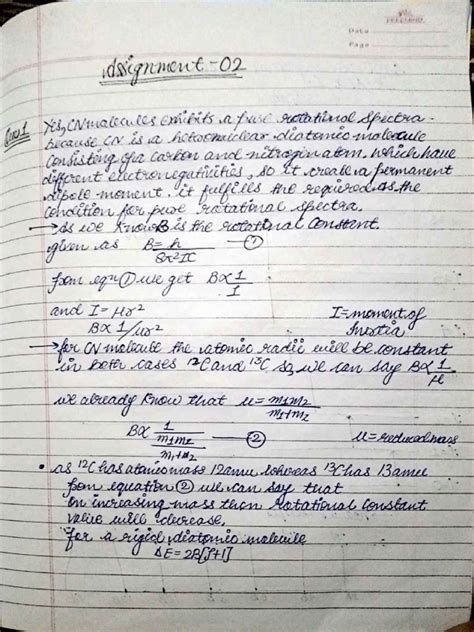 Date
Page
Assignment-02
Ques 1 Yes, CN molecules exhibits a pure rotational Spectra.
because CN is a heteronuclear diatomic molecule
Consisting of a carbon and nitrogen atom which have
different electronegativities, so it create a permanent
dipole-moment. it fulfills the required as the
condition for pure rotational spectra.
→ As we know B is the rotational Constant.
given as B = h/8π²IC — ①
from eqn ① we get B∝ 1/I
and I = μr² I = moment of
B∝ 1/μr² Inertia
→ for CN molecule the atomic radii will be constant
in both cases ¹²C and ¹³C so, we can say B∝ 1/μ
we already know that μ = m₁m₂/m₁+m₂
B∝ 1/(m₁m₂/m₁+m₂) — ② μ = reduced mass
• as ¹²C has atomic mass 12amu whereas ¹³C has 13amu
from equation ② we can say that
on increasing mass then rotational Constant
value will decrease.
for a rigid diatomic molecule
ΔE = 2B[J+1]